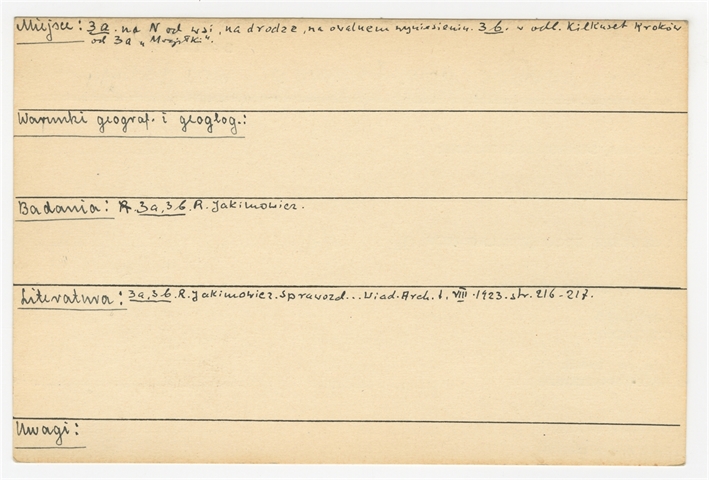 Miejsce: 3a. na N od wsi, na drodze, na ovalnem wyniesieniu. 3b. w odl. Kilkuset Kroków
od 3a „Mogiłki".
Warunki geograf. i geolog.:
Badania: 3a, 3b. R. Jakimowicz.
Literatura: 3a, 3b. R. Jakimowicz. Sprawozd... Wiad. Arch. t. VIII. 1923. str. 216-217.
Uwagi: